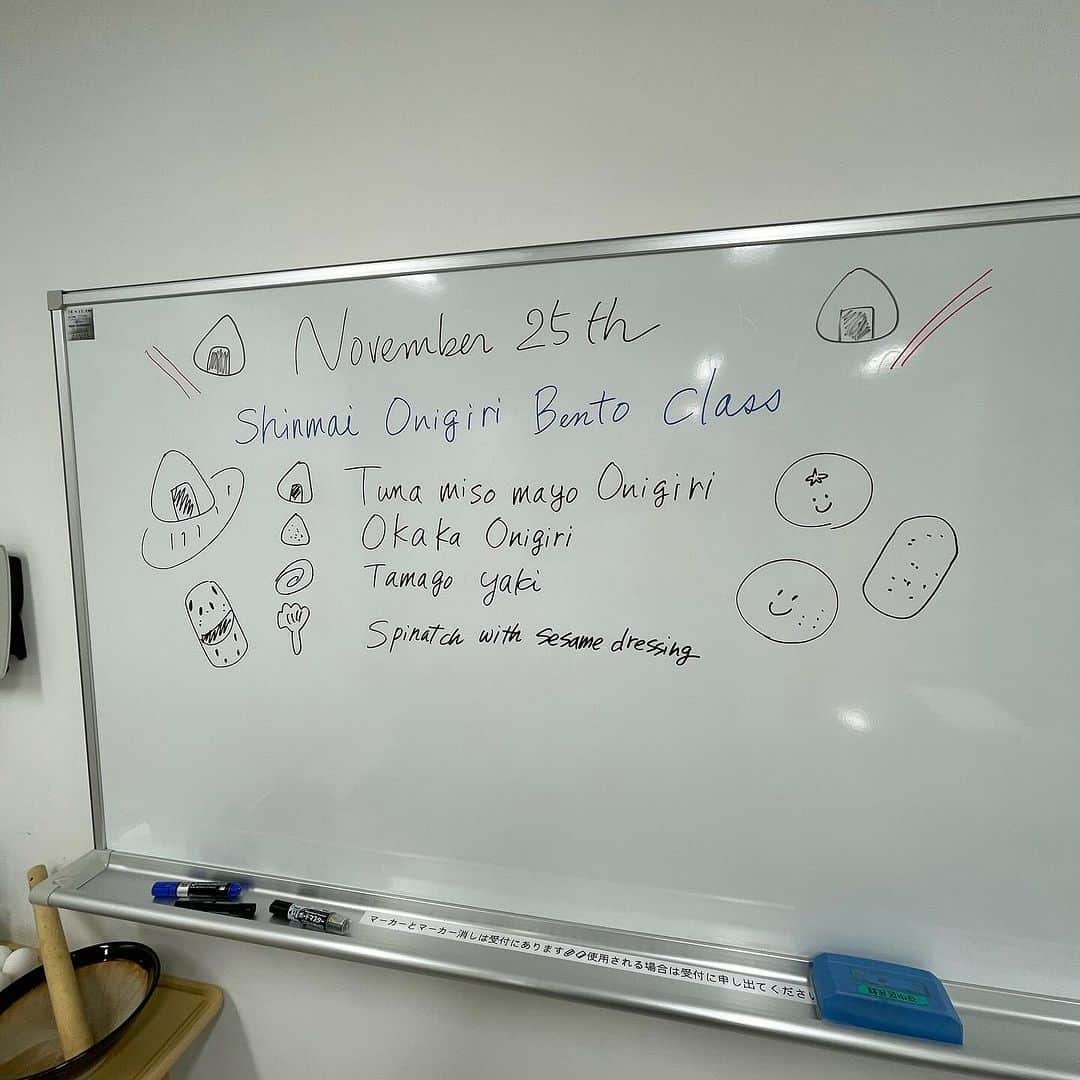 November 25th
Shinmai Onigiri Bento Class
Tuna miso mayo Onigiri
Okaka Onigiri
Tamago yaki
Spinatch with sesame dressing
ボードマスター
マーカーとマーカー消しは受付にあります 使用される場合は受付に申し出てください